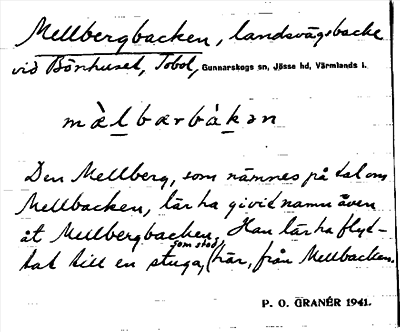 Mellbergbacken, landsvägsbacke
vid Bönhuset, Tobol, Gunnarskogs sn, Jösse hd, Värmlands l.
mälbærbàkan
Den Mellberg, som nämnes på tal om
Mellbacken, lär ha givid namn även
åt Mellbergbacken. Han lär ha flyd-
tat till en stuga, som stod här, från Mellbacken.
P. O. GRANÉR 1941.